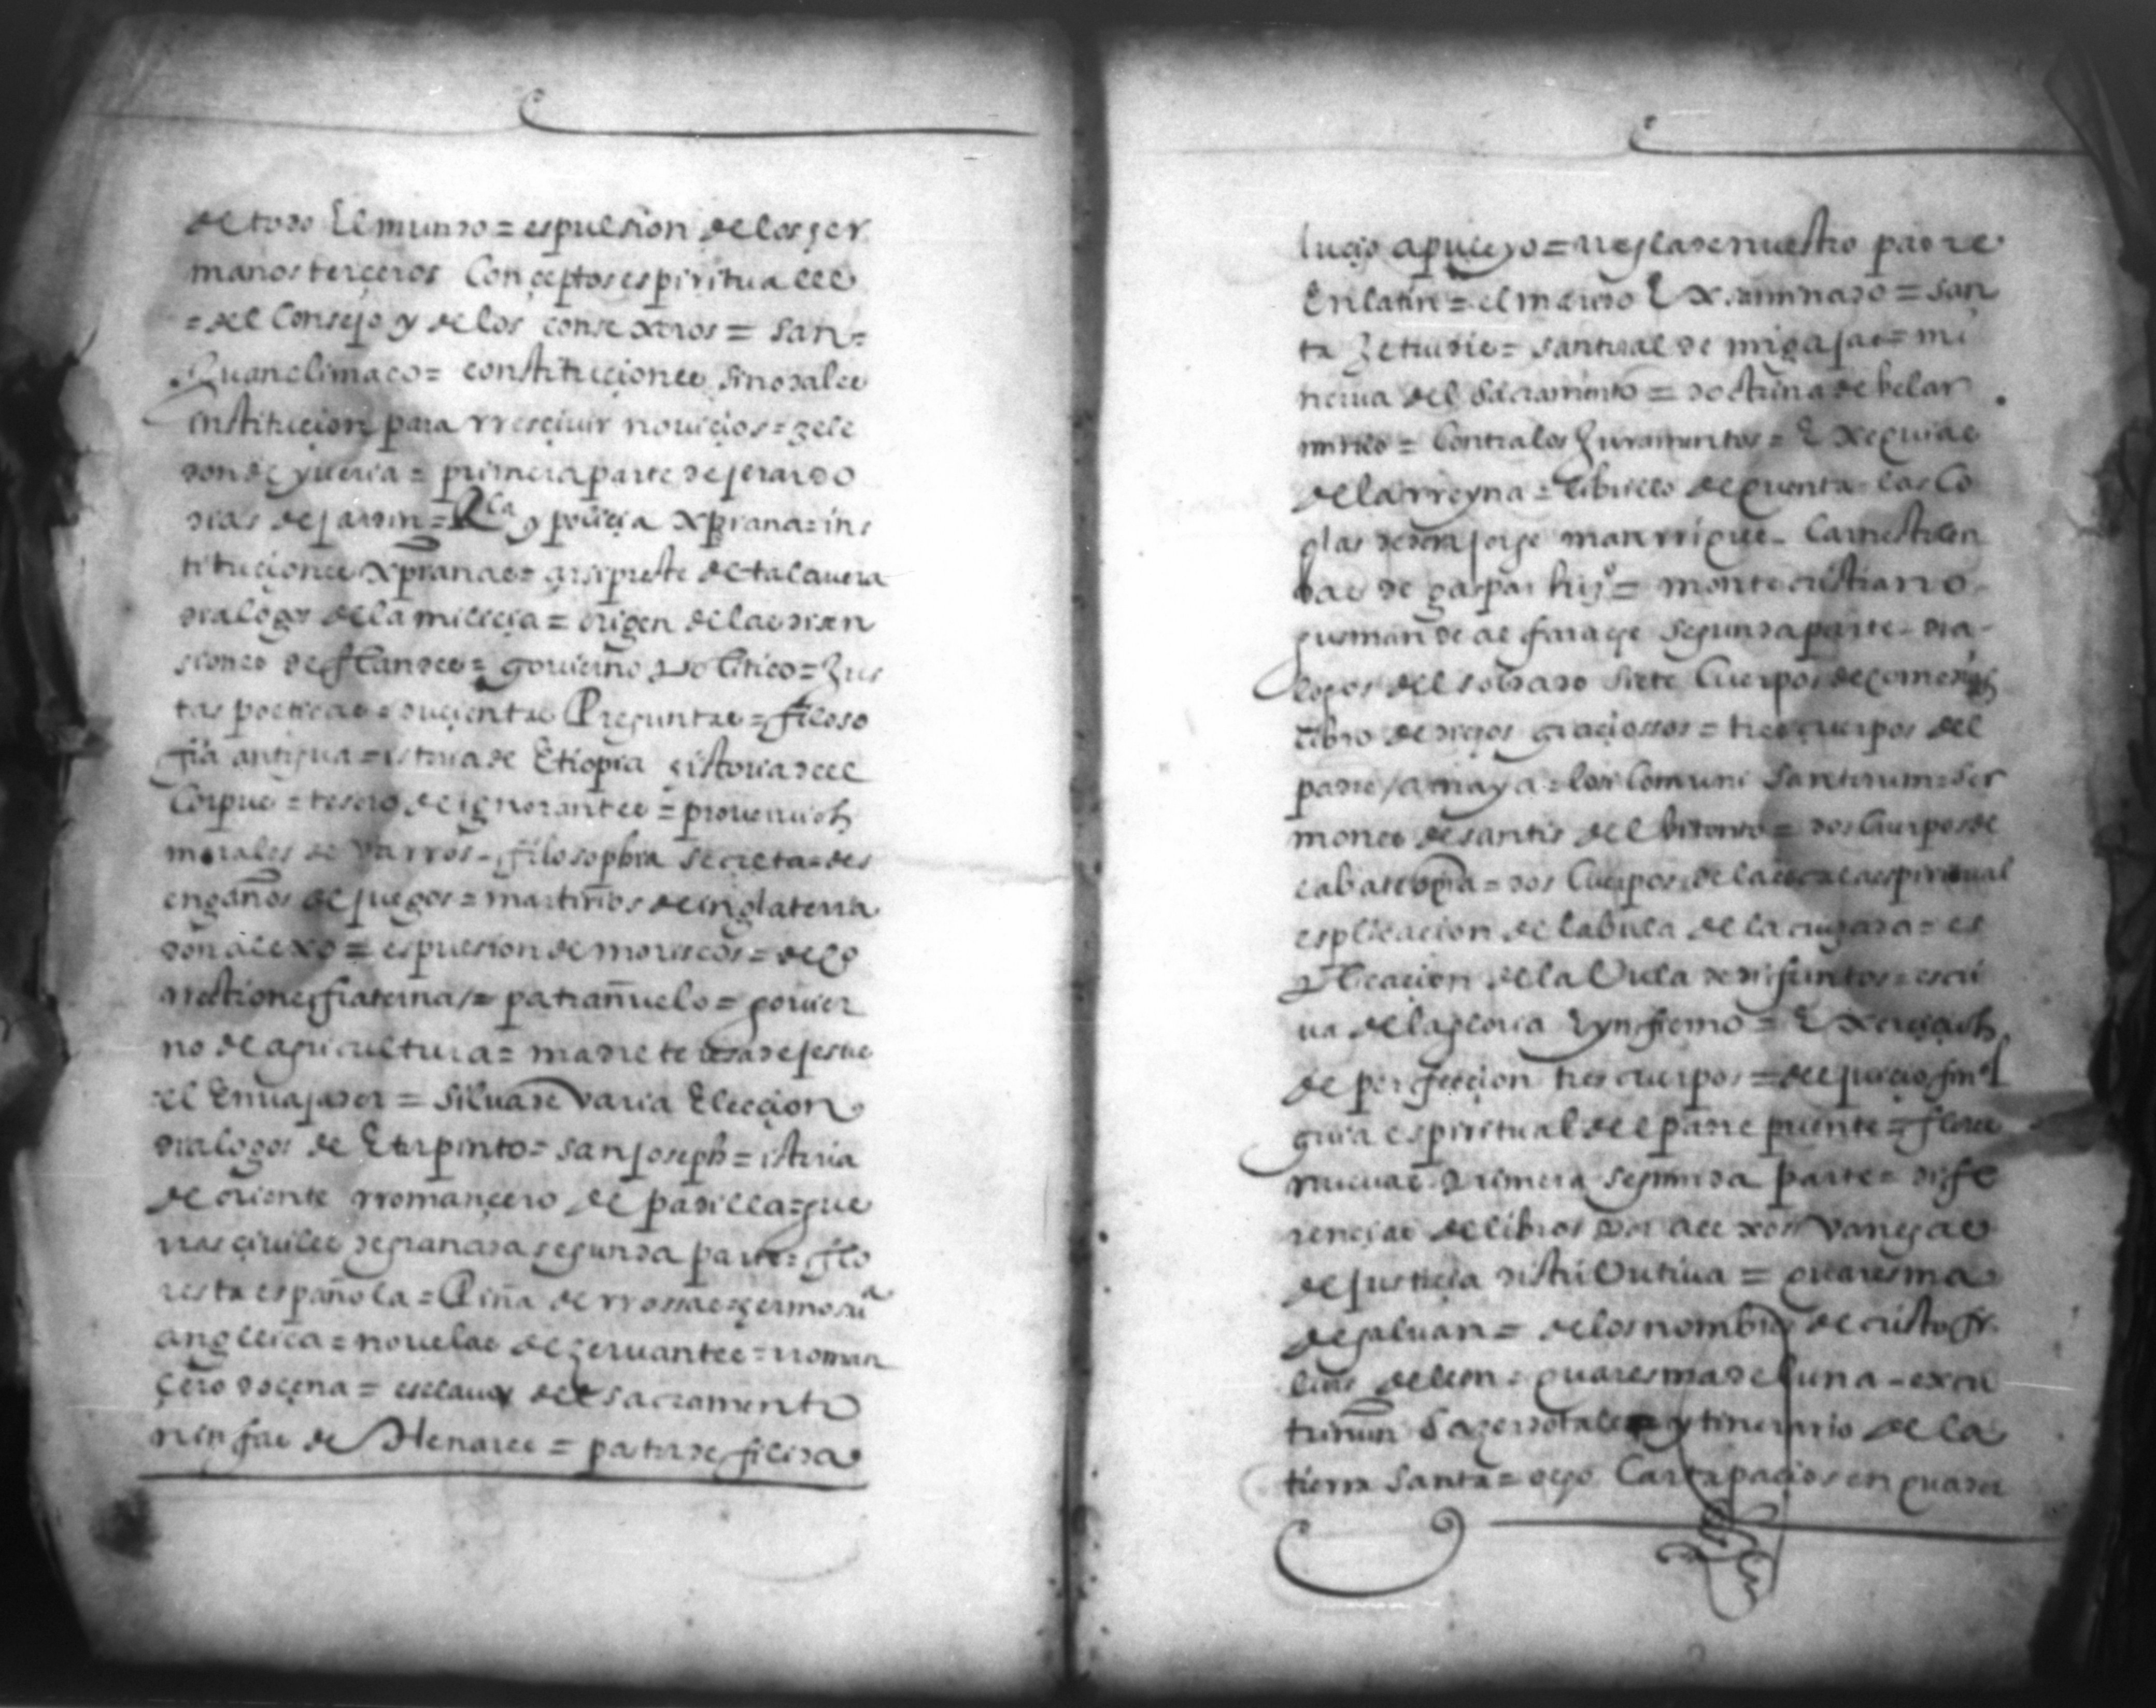 de todo El mundo = espulsion de los her
manos terceros Conçeptos espirituales
= del Consejo y de los consexeros = san =
Juan climaco = constituciones sinodales
institucion para rresçiuir nouiçios = zele
don de yueria = primera parte de jerardo
dias de jardin = Rca y poliçia xpiana = ins
tituciones xpianas = arsipreste de talauera
dialogos de la miliçia = origen de las disen
siones de flandes = gouierno Politico = Jus
tas poeticas = duçientas Preguntas = filoso
fia antigua = istoria de Etiopia historia del
Corpus = tesoro de ignorantes = proueruios
morales de Varros = filosophia secreta = des
engaños de juegos = martirios de inglaterra
don alexo = espulsion de moriscos = de co
rrectione fraterna = patrañuelo = gouier
no de agricultura = madre teresa de jesus
el Enuajador = silua de varia Elecçion
dialogos de Etorpinto = san joseph = istoria
de oriente rromançero de padilla = gue
rras çiuiles de granada segunda parte = flo
resta española = Piña de rrosas = hermosura
angelica = nouelas de zeruantes = rroman
çero doçena = esclauos del sacramento
ninfas de Henares = pastor de filida
luçio apuleyo = rregla de nuestro padre
En latin = el maridо Examinado = san
ta Jetrudis = santoral de migajas = mi
nerua del sacramento = doctrina de belar
mino = Contra los Juramentos = Exequias
de la rreyna = librillo de quenta = las Co
plas de don jorge manrrique = Carnestolen
das de gaspar lucas hidalgo = monte cristiano
gusman de alfarage segunda parte = dia
logos del soldado siete Cuerpos de comedias
libro de dichos graçiossos = tres cuerpos del
padre / amaya = los Comuni santorum = ser
mones de santis del bitonto = dos Cuerpos de
dos Cuerpos de la escala espiritual
esplicaçion de la bula de la cruzada = es
Plicaçion de la Vula de difuntos = escri
ua de la gloria Eynfierno = Exerçiçios
de perfecçion tres cuerpos = del juiçio final
guia espiritual del padre puente = flores
nueuas Primera segunda parte = dife
rençias de libros por alexos vanegas
de justiçia distriButiua = quaresma
de galuan = de los nombres de cristo fr.
luis de leon = quaresma de luna =
Sazerdotales = ytinerario de la
tierra santa = ocho Cartapaçios en quader